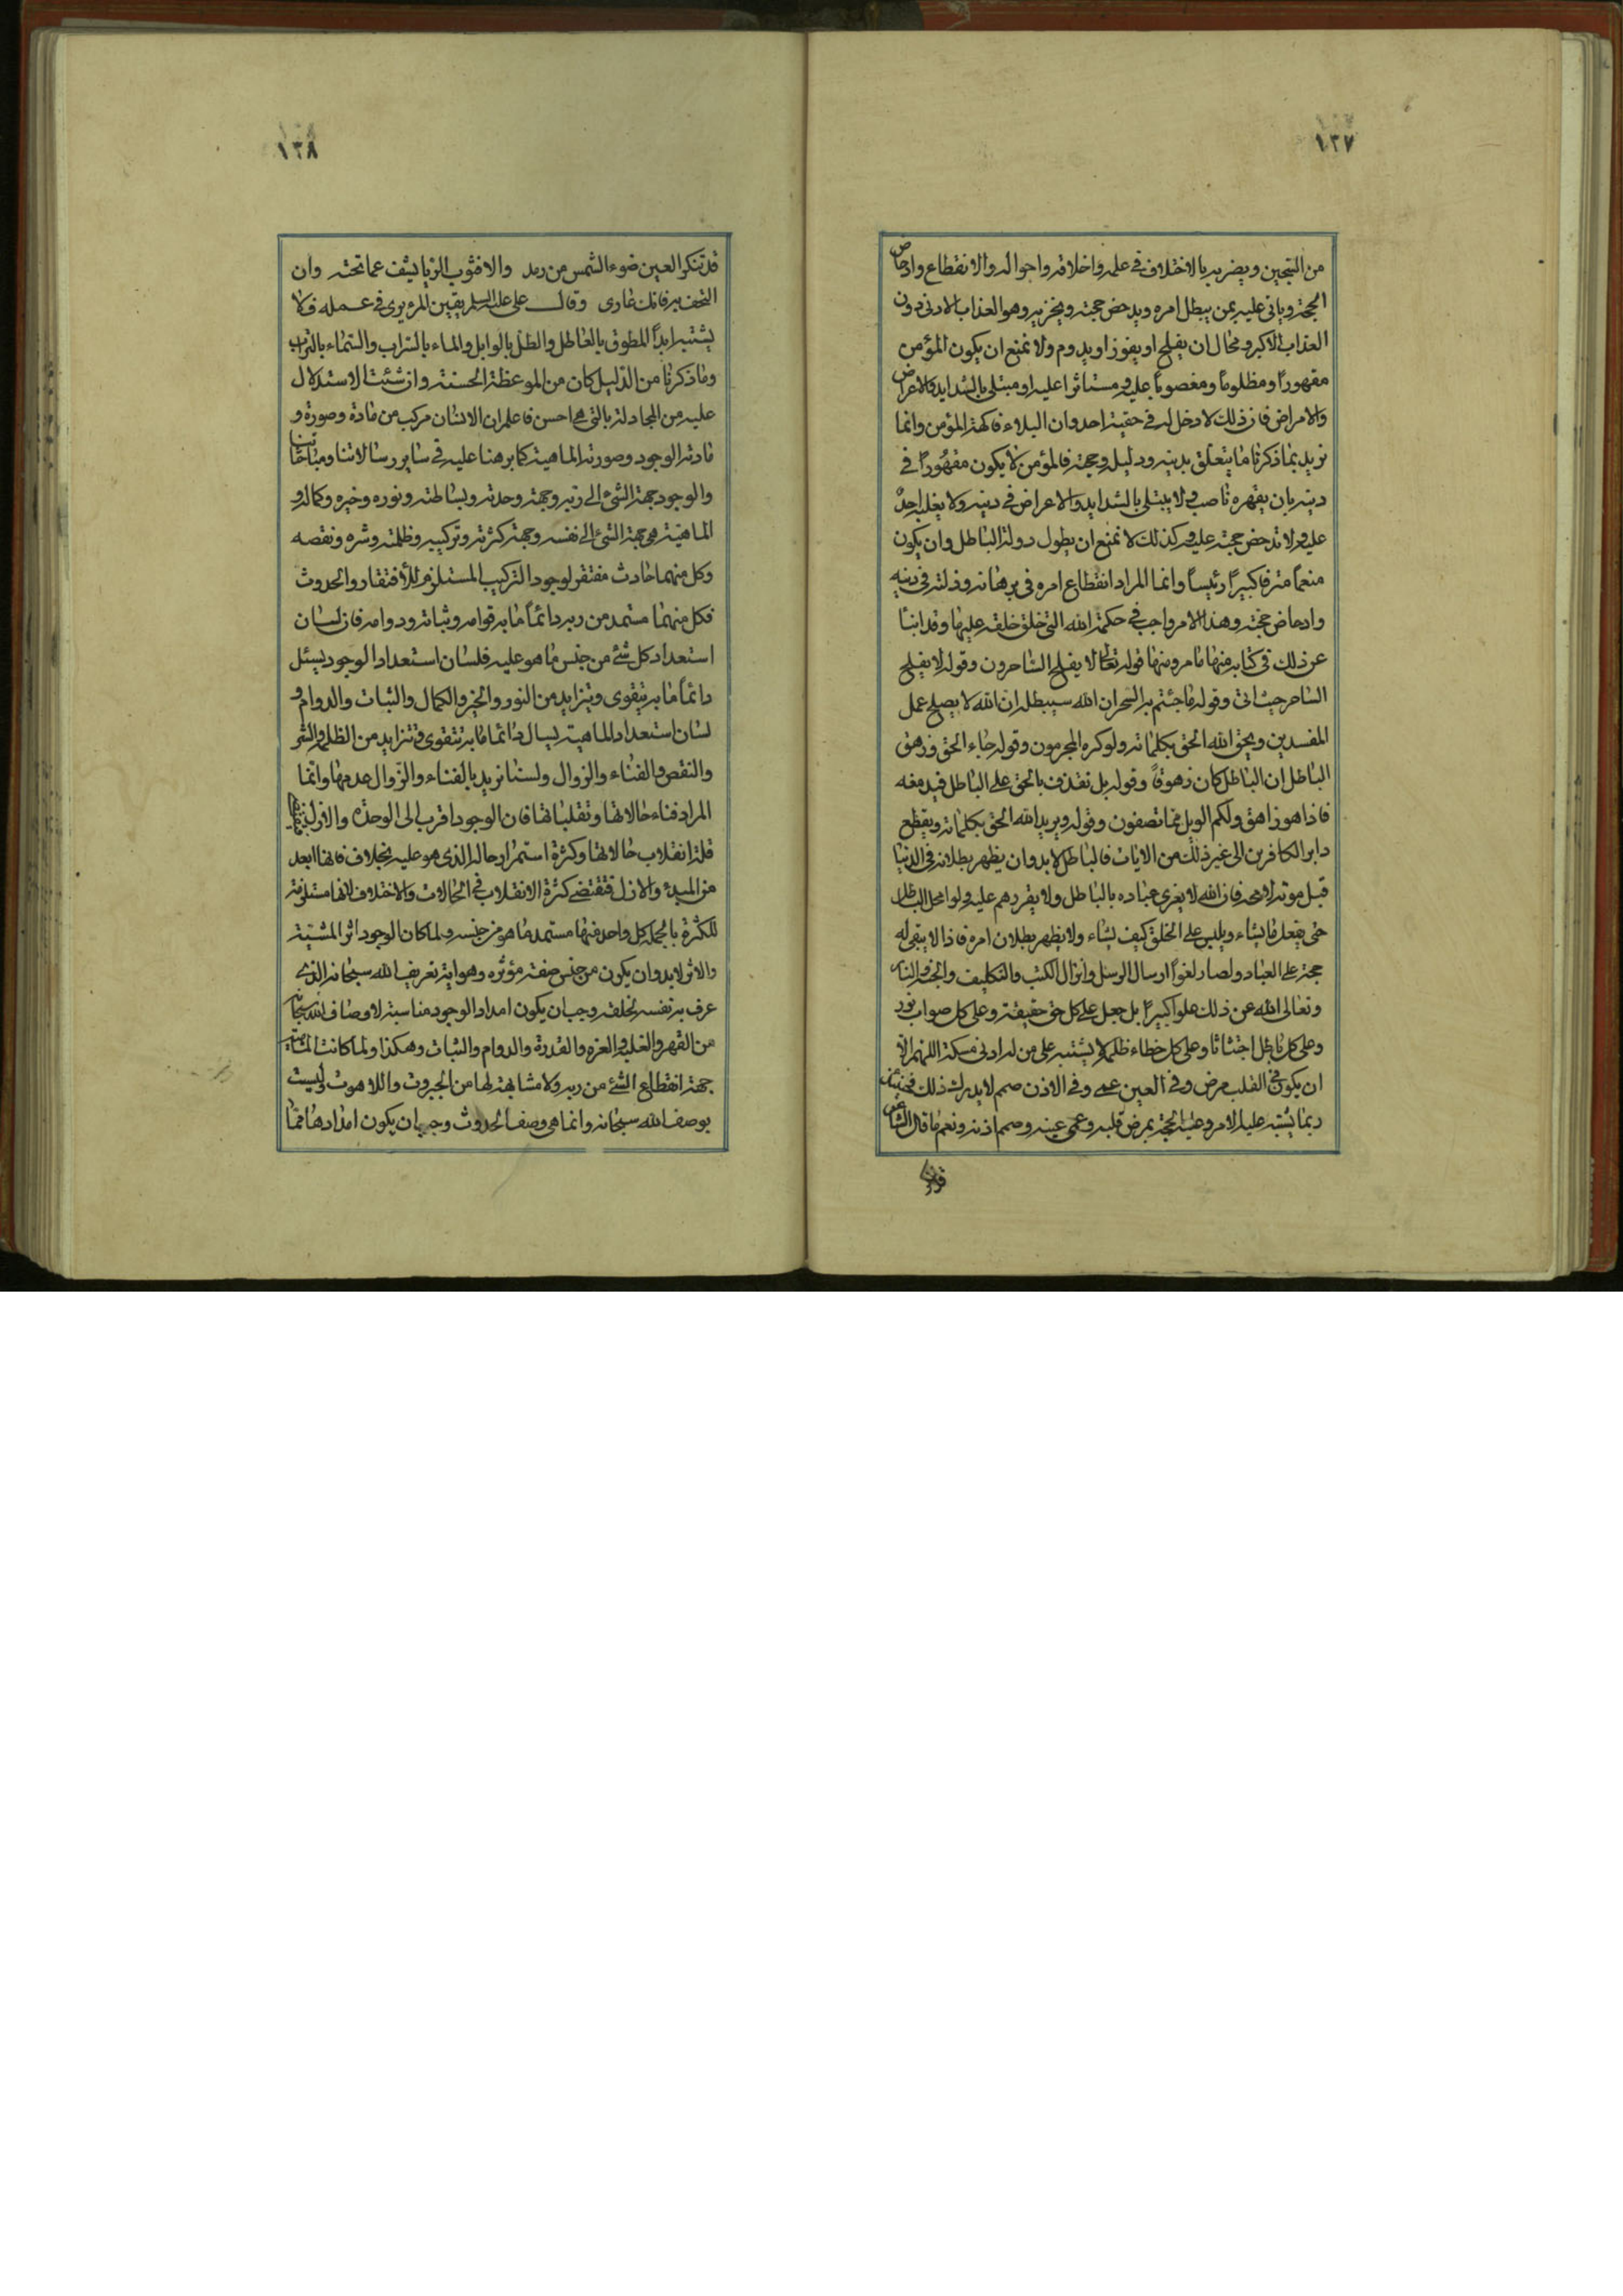 ١٣٧
من السجين ويضربه بالاختلاف في علمه واخلاقه واحواله والانقطاع وادحاض
الحجة وياتي عليه بمن يبطل امره ويدحض حجته ويخزيه وهو العذاب الادنى دون
العذاب الاكبر ومحال ان يفلح او يفوز او يدوم ولا نمنع ان يكون المؤمن
مقهوراً ومظلوماً ومغصوباً عليه ومستاثرا عليه او مبتلى بالشدايد والاعراض
والامراض فان ذلك لا دخل له في حقية احد وان البلاء فاكهة المؤمن وانما
نريد بما ذكرنا ما يتعلق بدينه ودليله وحجته فالمؤمن لا يكون مقهوراً في
دينه بان يقهره ناصب ولا يبتلى بالشدايد والاعراض في دينه ولا يغلبه احدٌ
عليه ولا تدحض حجته عليه وكذلك لا نمنع ان يطول دولة الباطل وان يكون
منعماً مترفا كبيراً رئيساً وانما المراد انقطاع امره في برهانه وذلته في دينه
وادحاض حجته وهذا الامر واجب في حكمة الله التي خلق خلقه عليها وقد انبئا
عن ذلك في كتابه منها ما مر ومنها قوله تعالى لا يفلح الساحرون وقوله لا يفلح
الساحر حيث اتى وقوله ما جئتم به السحر ان الله سيبطله ان الله لا يصلح عمل
المفسدين ويحق الله الحق بكلماته ولو كره المجرمون وقوله جاء الحق وزهق
الباطل ان الباطل كان زهوقاً وقوله بل نقذف بالحق على الباطل فيدمغه
فاذا هو زاهق ولكم الويل مما تصفون وقوله ويريد الله الحق بكلماته ويقطع
دابر الكافرين الى غير ذلك من الايات فالباطل لابد وان يظهر بطلانه في الدنيا
قبل موته فان الله لا يغري عباده بالباطل ولا يقررهم عليه ولو امحل الباطل
حتى يفعل ما يشاء ويلبس على الخلق كيف يشاء ولا يظهر بطلان امره فاذا لا يبقى له
حجة على العباد ولصار لغواً ارسال الرسل وانزال الكتب والتكليف والجنة والنار
وتعالى الله عن ذلك علوا كبيراً بل جعل على كل حق حقيقة وعلى كل صواب نور
وعلى كل باطل اجتثاثا وعلى كل خطاء ظلمة لا يشتبه على من له ادنى مسكة اللهم الا
ان يكون في القلب مرض وفي العين عمى وفي الاذن صمم لا يدرك ذلك فحينئذ
ربما يشتبه عليه الامر وعليه الحجة بمرض قلبه وعمى عينه وصمم اذنه ونعم ما قال الشاعر
١٣٨
قد تنكر العين ضوء الشمس من رمد والا فثوب الريا يشف عما تحته وان
التحفت به فانك عارى وقال على عليه السلم يقين المرء يرى في عمله فلا
يشتبه ابداً المطوق بالعاطل والطل بالوابل والماء بالسراب والسماء بالتراب
وما ذكرنا من الدليل كان من الموعظة الحسنة وان شئت الاستدلال
عليه من المجادلة بالتي هي احسن فاعلم ان الانسان مركب من مادة وصورة و
مادته الوجود وصورته الماهية كما برهنا عليه في ساير رسالاتنا ومباحثاتنا
والوجود جهة الشئ الى ربه وجهة وحدته وبساطته ونوره وخيره وكماله و
الماهية هي جهة الشئ الى نفسه وجهة كثرته وتركيبه وظلمته وشره ونقصه
وكل منهما حادث مفتقر لوجود التركيب المستلزم للأفتقار والحدوث
فكل منهما مستمد من ربه دائماً ما به قوامه وثباته ودوامه فان لسان
استعداد كل شئ من جنس ما هو عليه فلسان استعداد الوجود يسئل
دائماً ما به يتقوى ويتزايد من النور والخير والكمال والثبات والدوام و
لسان استعداد الماهية يسال دائما ما به تتقوى وتتزايد من الظلمة والشر
والنقص والفناء والزوال ولسنا نريد بالفناء والزوال عدمها وانما
المراد فناء حالاتها وتقلباتها فان الوجود اقرب الى الوحدة والاولية
قلة انقلاب حالاتها وكثرة استمرار حاله الذي هو عليه بخلاف فانها ابعد
من المبدء والازل فتقتضي كثرة الانقلاب في الحالات والاختلاف لانها مستلزمة
للكثرة بالجملة كل واحد منهما مستمد ما هو من جنسه ولما كان الوجود اثر المشية
والاثر لابد وان يكون من جنس صفة مؤثره وهو اية تعريف الله سبحانه الذي
عرف به نفسه لخلقه وجب ان يكون امداد الوجود مناسبة لاوصاف الله سبحانه
من القهر والغلبة والعزة والقدرة والدوام والثبات وهكذا ولما كانت الماهية
جهة انقطاع الشئ من ربه ولا مشابهة لها من الجبروت واللاهوت وليست
بوصف الله سبحانه وانما هي وصف الحدوث وجب ان يكون امدادها مما